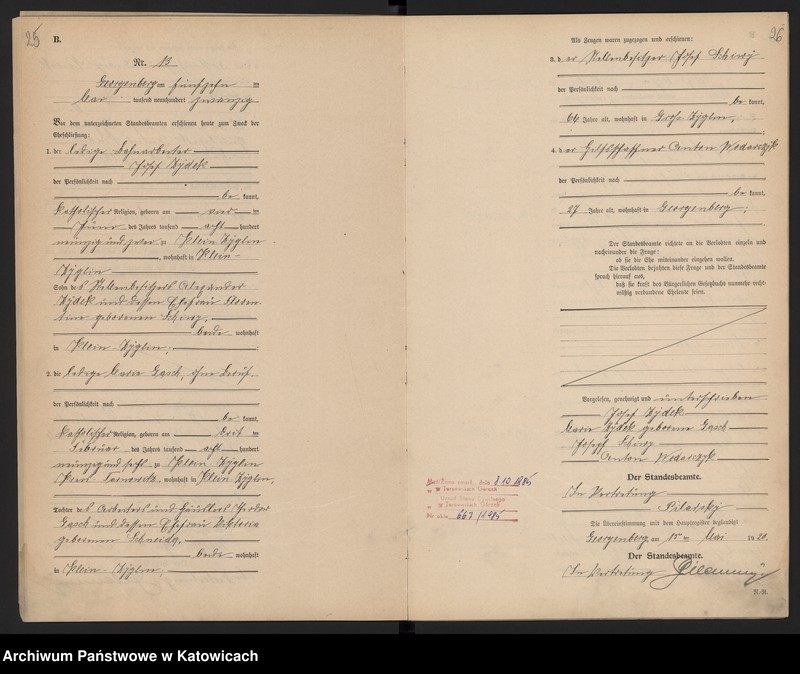 25
B.
Nr. 13
Georgenberg am fünfzehn ten
Mai tausend neunhundert zwanzig
Vor dem unterzeichneten Standesbeamten erschienen heute zum Zweck der
Eheschließung:
1. der ledige Bahnarbeiter
Josef Zydek
der Persönlichkeit nach
be kannt,
katholischer Religion, geboren am
des Jahres tausend acht hundert
neunzig und zwei zu Klein Zyglin
, wohnhaft in Klein-
Zyglin
Sohn des Stellenbesitzers Alexander
Zydek und dessen Ehefrau
geborenen Schirz,
beide wohnhaft
in Klein-Zyglin;
2. die ledige Marie Gasch, ohne Beruf
der Persönlichkeit nach
be kannt,
katholischer Religion, geboren am drit ten
Februar des Jahres tausend acht hundert
neunzig und sechs zu Klein Zyglin
Kreis Tarnowitz, wohnhaft in Klein-Zyglin,
Tochter des Arbeiters und Häuslers Theodor
Gasch und dessen Ehefrau Viktoria
geborenen Schneida,
beide wohnhaft
in Klein-Zyglin;
26
Als Zeugen waren zugezogen und erschienen:
3. der Stellenbesitzer Josef Schirz
der Persönlichkeit nach
be kannt,
66 Jahre alt, wohnhaft in Groß Zyglin,
4. der Hilfsschaffner Anton Wodarczyk
der Persönlichkeit nach
be kannt,
27 Jahre alt, wohnhaft in Georgenberg;
Der Standesbeamte richtete an die Verlobten einzeln und
nacheinander die Frage:
ob sie die Ehe miteinander eingehen wollen.
Die Verlobten bejahten diese Frage und der Standesbeamte
sprach hierauf aus,
daß sie kraft des Bürgerlichen Gesetzbuchs nunmehr recht-
mäßig verbundene Eheleute seien.
Vorgelesen, genehmigt und unterschrieben
Josef Zydek
Marie Zydek geborene Gasch
Josef Schirz
Anton Wodarczyk
Der Standesbeamte.
In Vertretung
Die Übereinstimmung mit dem Hauptregister beglaubigt
Georgenberg, am 15 ten Mai 1920.
Der Standesbeamte.
In Vertretung
dnia 8.10.1985
Urząd Stanu Cywilnego
w Tarnowskich Górach
Nr aktu 667/1985
Archiwum Państwowe w Katowicach